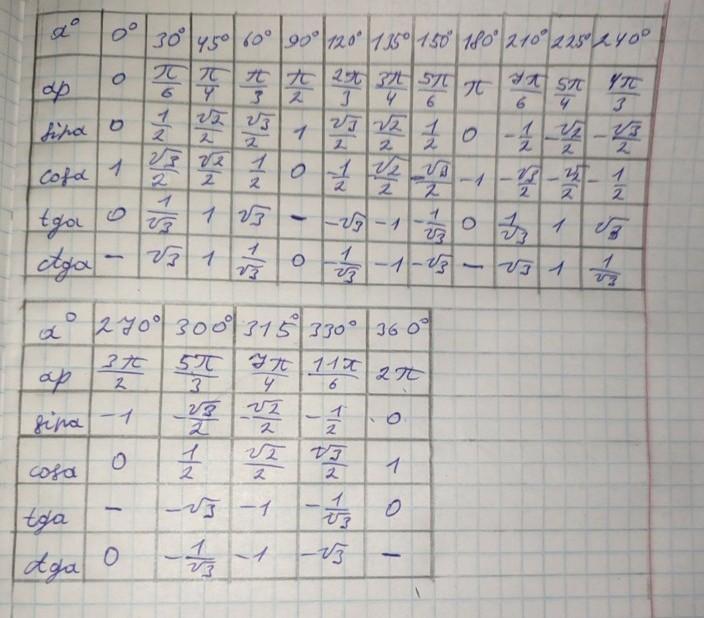 α° 0° 30° 45° 60° 90° 120° 135° 150° 180° 210° 225° 240°
αр 0 π/6 π/4 π/3 π/2 2π/3 3π/4 5π/6 π 7π/6 5π/4 4π/3
sinα 0 1/2 √2/2 √3/2 1 √3/2 √2/2 1/2 0 -1/2 -√2/2 -√3/2
cosα 1 √3/2 √2/2 1/2 0 -1/2 √2/2 -√3/2 -1 -√3/2 -√2/2 -1/2
tgα 0 1/√3 1 √3 - -√3 -1 -1/√3 0 1/√3 1 √3
ctgα - √3 1 1/√3 0 -1/√3 -1 -√3 - √3 1 1/√3
α° 270° 300° 315° 330° 360°
αр 3π/2 5π/3 7π/4 11π/6 2π
sinα -1 -√3/2 -√2/2 -1/2 0
cosα 0 1/2 √2/2 √3/2 1
tgα - -√3 -1 -1/√3 0
ctgα 0 -1/√3 -1 -√3 -